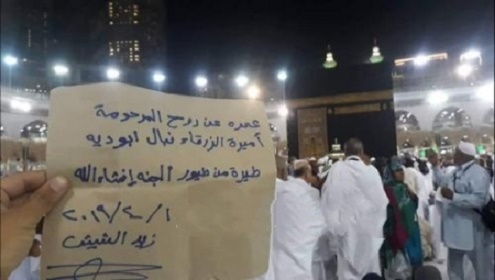 عمره عن روح المرحومة
أميرة الزرقاء نبال ابوديه
طيرة من طيور الجنه إنشاءالله
٢٠١٩/٢/١
زيد الشيش